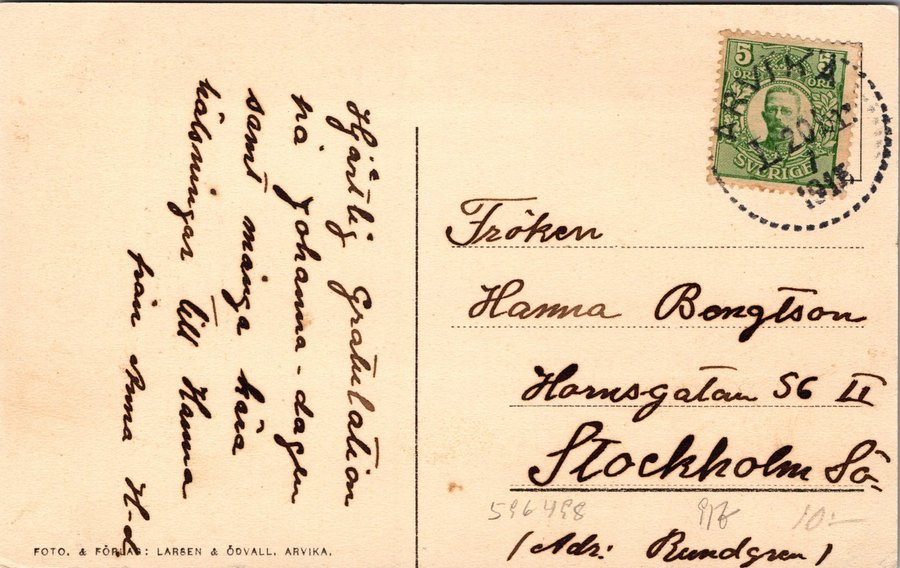 Hjärtlig Gratulation
på Johanna-dagen
samt många kära
hälsningar till Hanna
från Anna H-d
FOTO. & FÖRLAG: LARSEN & ÖDVALL, ARVIKA.
5 5
ÖRE ÖRE
SVERIGE
ARVIKA
20
7
1915
Fröken
Hanna Bengtson
Hornsgatan 56 II
Stockholm Sö.
596498
10:-
(Adr: Rundgren)